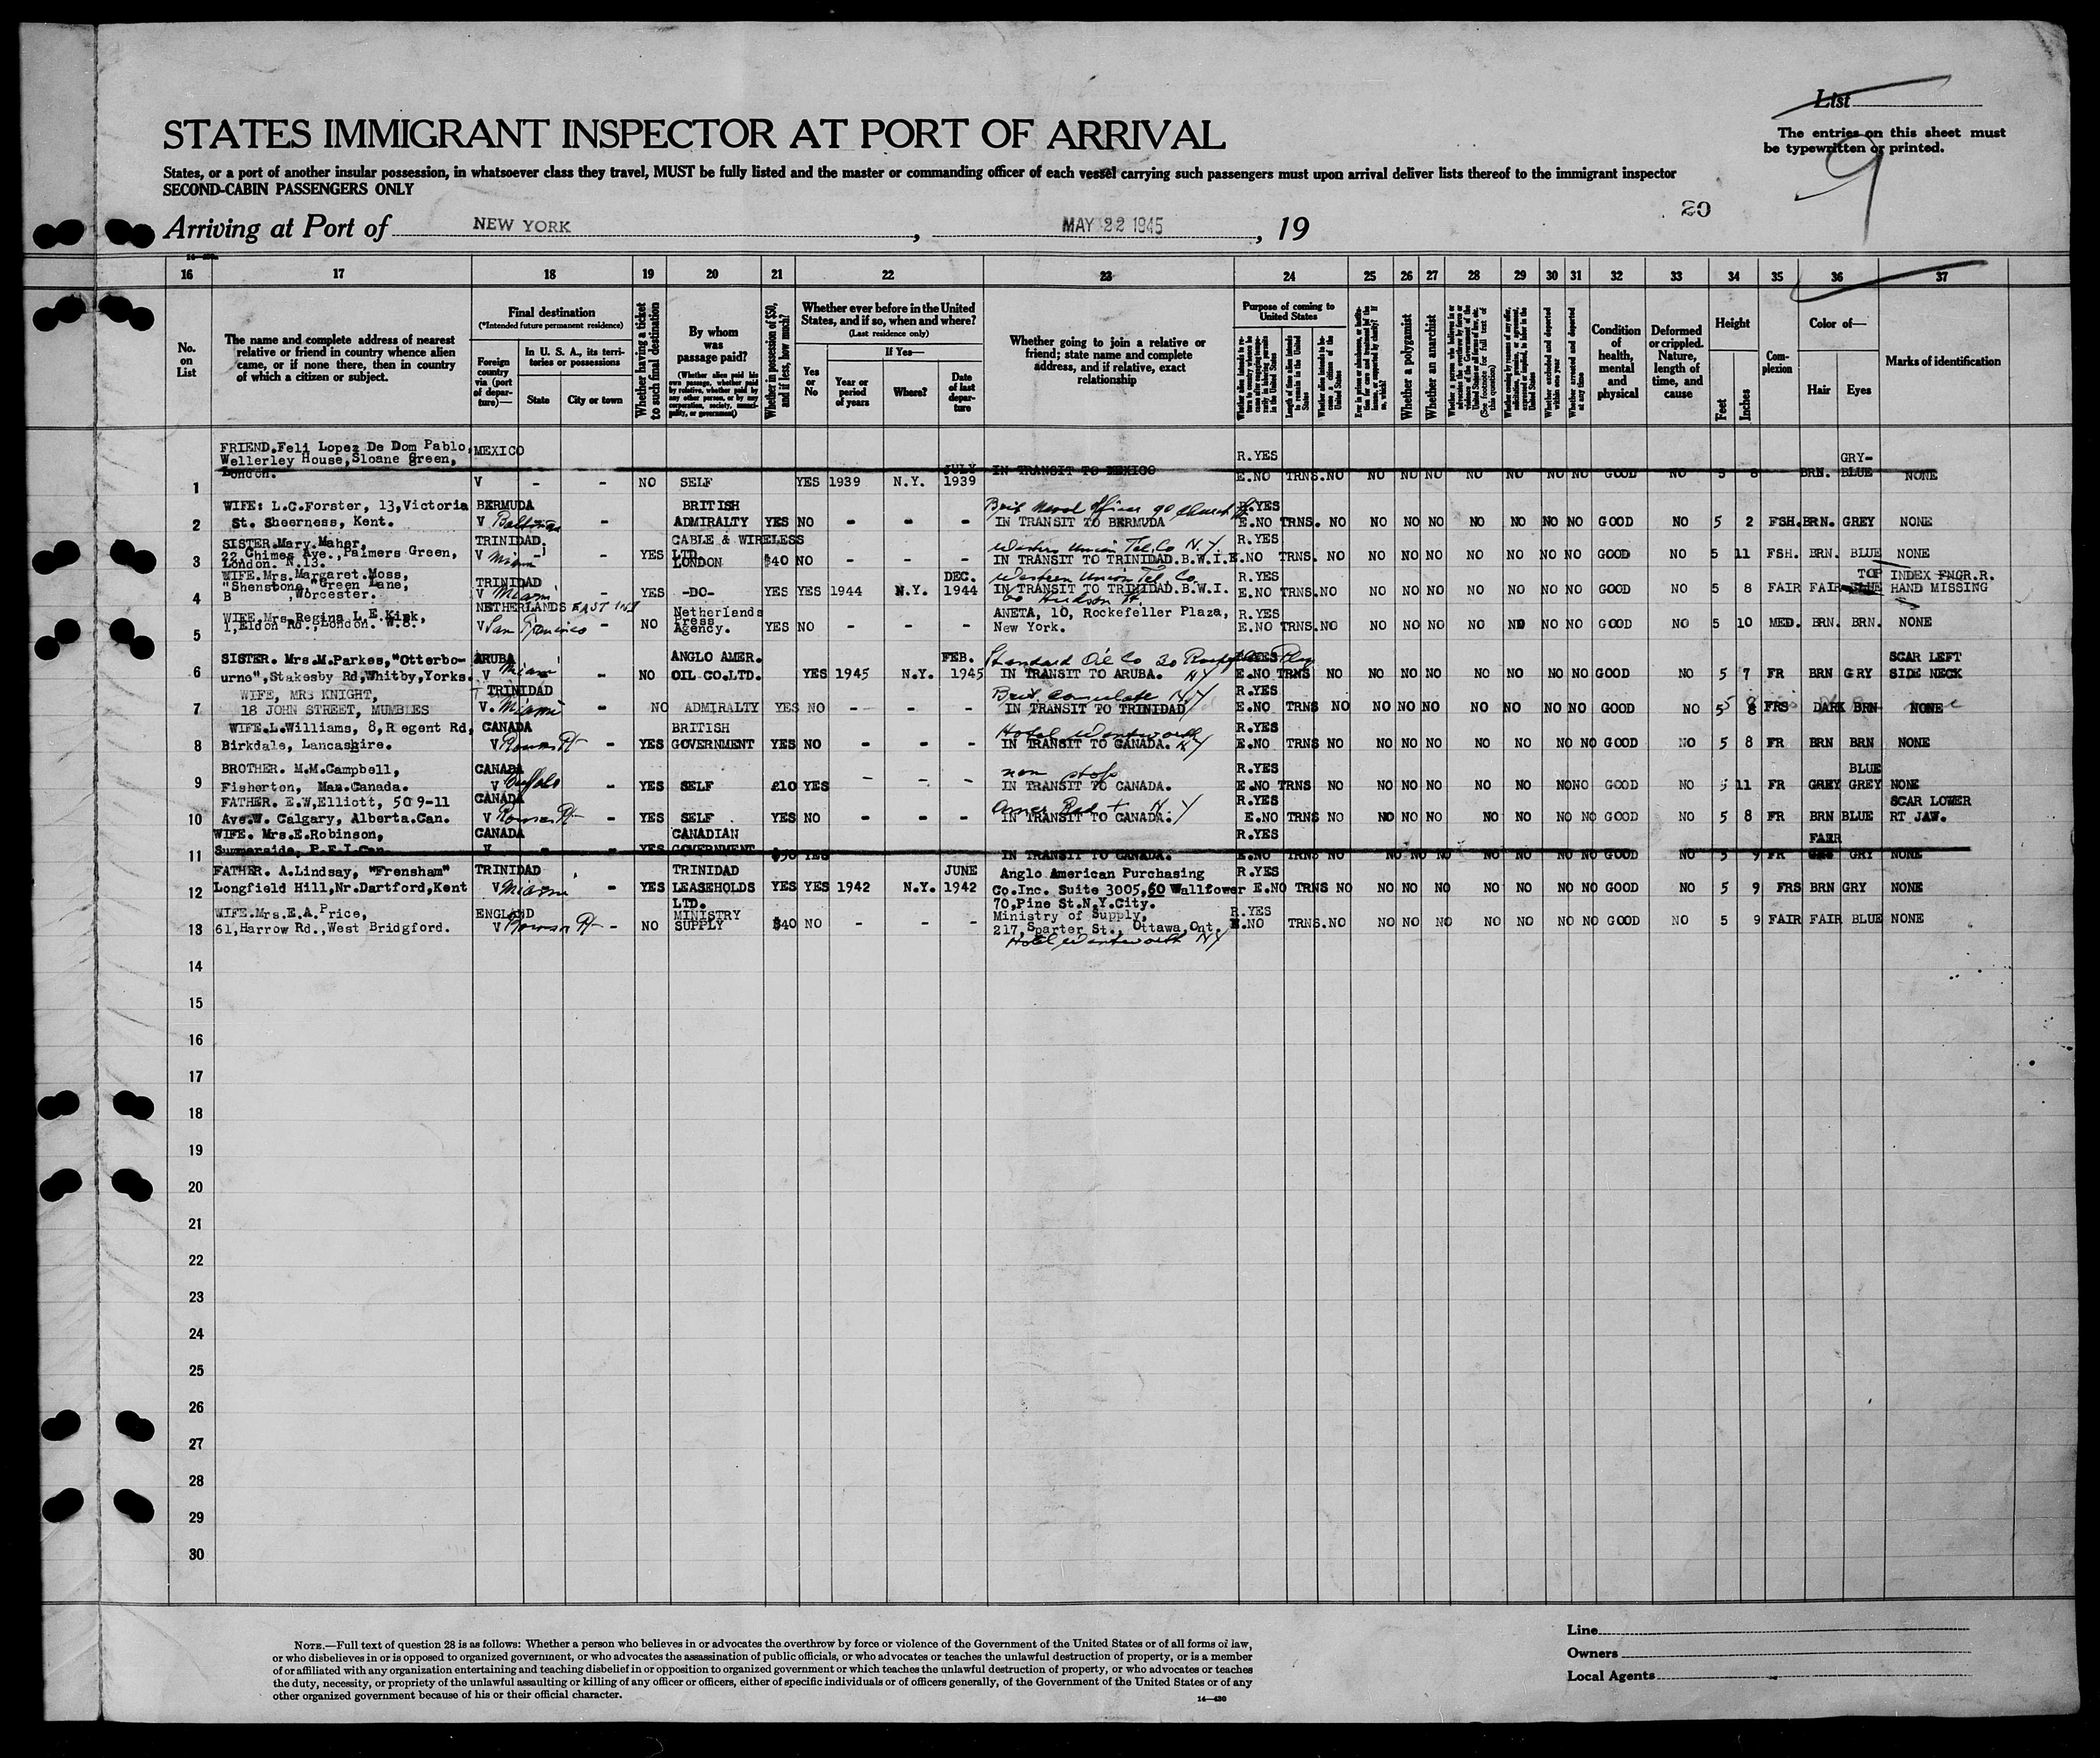 List
The entries on this sheet must
be typewritten or printed.
9
STATES IMMIGRANT INSPECTOR AT PORT OF ARRIVAL
States, or a port of another insular possession, in whatsoever class they travel, MUST be fully listed and the master or commanding officer of each vessel carrying such passengers must upon arrival deliver lists thereof to the immigrant inspector
SECOND-CABIN PASSENGERS ONLY
20
Arriving at Port of NEW YORK, MAY 22 1945, 19
16 17 18 19 20 21 22 23 24 25 26 27 28 29 30 31 32 33 34 35 36 37
No. on List
The name and complete address of nearest
relative or friend in country whence alien
came, or if none there, then in country
of which a citizen or subject.
Final destination
(*Intended future permanent residence)
Foreign country via (port of departure)—
In U. S. A., its territories or possessions
State City or town
Whether having a ticket to such final destination
By whom was passage paid?
(Whether alien paid his own passage, whether paid by relative, whether paid by any other person, or by any corporation, society, municipality, or government)
Whether in possession of $50, and if less, how much?
Whether ever before in the United States, and if so, when and where?
(Last residence only)
Yes or No
If Yes—
Year or period of years
Where?
Date of last departure
Whether going to join a relative or
friend; state name and complete
address, and if relative, exact
relationship
Purpose of coming to United States
Length of time alien intends to remain in the United States
Whether alien intends to become a citizen of the United States
Whether a polygamist
Whether an anarchist
Whether excluded and deported within one year
Whether arrested and deported at any time
Condition of health, mental and physical
Deformed or crippled. Nature, length of time, and cause
Height
Feet Inches
Complexion
Color of—
Hair Eyes
Marks of identification
FRIEND.Feli Lopez De Dom Pablo, MEXICO R.YES GRY-
Wellerley House,Sloane Green,
London. JULY IN TRANSIT TO MEXICO
1 V - - NO SELF YES 1939 N.Y. 1939 E.NO TRNS.NO NO NO NO NO NO NO NO GOOD NO 5 8 BRN. BLUE NONE
WIFE: L.C.Forster, 13,Victoria BERMUDA BRITISH Brit Naval Officer 90 Church R.YES
2 St. Sheerness, Kent. V Baltimore - ADMIRALTY YES NO - - - IN TRANSIT TO BERMUDA E.NO TRNS. NO NO NO NO NO NO NO NO GOOD NO 5 2 FSH. BRN. GREY NONE
SISTER.Mary.Maher, TRINIDAD. CABLE & WIRELESS Western Union Tel. Co N.Y. R.YES
22 Chimes Ave.,Palmers Green, LTD.
3 London. N.13. V Miami - YES LONDON $40 NO - - - IN TRANSIT TO TRINIDAD.B.W.I. E.NO TRNS. NO NO NO NO NO NO NO NO GOOD NO 5 11 FSH. BRN. BLUE NONE
WIFE.Mrs.Margaret.Moss, TRINIDAD DEC. Western Union Tel. Co. R.YES TOP INDEX FNGR.R.
"Shenstone,"Green Lane,
4 B ,Worcester. V Miami - YES -DO- YES YES 1944 N.Y. 1944 IN TRANSIT TO TRINIDAD.B.W.I. E.NO TRNS. NO NO NO NO NO NO NO NO GOOD NO 5 8 FAIR FAIR BLUE HAND MISSING
60 Hudson St.
WIFE.Mrs.Regina L.E.Kirk, NETHERLANDS EAST IND Netherlands ANETA, 10, Rockefeller Plaza, R.YES
5 1,Eldon Rd.,London. W.8. V San Francisco - NO Press Agency. YES NO - - - New York. E.NO TRNS.NO NO NO NO NO NO NO NO GOOD NO 5 10 MED. BRN. BRN. NONE
SISTER. Mrs.M.Parkes,"Otterbo- ARUBA ANGLO AMER. FEB. Standard Oil Co 30 R.YES SCAR LEFT
6 urne",Stakesby Rd,Whitby,Yorks. V Miami - NO OIL CO.LTD. YES 1945 N.Y. 1945 IN TRANSIT TO ARUBA. NY E.NO TRNS NO NO NO NO NO NO NO NO GOOD NO 5 7 FR BRN GRY SIDE NECK
WIFE, MRS KNIGHT, TRINIDAD Brit. Consulate NY R.YES
7 18 JOHN STREET, MUMBLES V. Miami - NO ADMIRALTY YES NO - - - IN TRANSIT TO TRINIDAD E.NO TRNS NO NO NO NO NO NO NO NO GOOD NO 5 8 FRS DARK BRN NONE
WIFE.L.Williams, 8,Regent Rd, CANADA BRITISH Hotel Wentworth R.YES
8 Birkdale, Lancashire. V Rouses Pt - YES GOVERNMENT YES NO - - - IN TRANSIT TO CANADA. NY E.NO TRNS NO NO NO NO NO NO NO NO GOOD NO 5 8 FR BRN BRN NONE
BROTHER. M.M.Campbell, CANADA non stop R.YES BLUE
9 Fisherton, Man.Canada. V Buffalo - YES SELF £10 YES - - - IN TRANSIT TO CANADA. E.NO TRNS NO NO NO NO NO NO NO NO GOOD NO 5 11 FR GREY GREY NONE
FATHER. E.W,Elliott, 509-11 CANADA Amer Red + N.Y R.YES SCAR LOWER
10 Ave.W. Calgary, Alberta.Can. V Rouses Pt - YES SELF YES NO - - - IN TRANSIT TO CANADA. E.NO TRNS NO NO NO NO NO NO NO NO GOOD NO 5 8 FR BRN BLUE RT JAW.
WIFE. Mrs.E.Robinson, CANADA CANADIAN R.YES FAIR
11 Summerside, P.E.I.Can. V - - YES GOVERNMENT $50 YES IN TRANSIT TO CANADA. E.NO TRNS NO NO NO NO NO NO NO NO GOOD NO 5 9 FR GRY NONE
FATHER. A.Lindsay, "Frensham" TRINIDAD TRINIDAD JUNE Anglo American Purchasing R.YES
12 Longfield Hill,Nr.Dartford,Kent V Miami - YES LEASEHOLDS YES YES 1942 N.Y. 1942 Co.Inc. Suite 3005,60 Walltower E.NO TRNS NO NO NO NO NO NO NO NO GOOD NO 5 9 FRS BRN GRY NONE
LTD. 70,Pine St.N.Y.City.
WIFE.Mrs.E.A.Price, ENGLAND MINISTRY Ministry of Supply, R.YES
13 61,Harrow Rd.,West Bridgford. V Rouses Pt - NO SUPPLY $40 NO - - - 217,Sparter St., Ottawa,Ont. E.NO TRNS.NO NO NO NO NO NO NO NO GOOD NO 5 9 FAIR FAIR BLUE NONE
Hotel Wentworth NY
14
15
16
17
18
19
20
21
22
23
24
25
26
27
28
29
30
NOTE.—Full text of question 28 is as follows: Whether a person who believes in or advocates the overthrow by force or violence of the Government of the United States or of all forms of law,
or who disbelieves in or is opposed to organized government, or who advocates the assassination of public officials, or who advocates or teaches the unlawful destruction of property, or is a member
of or affiliated with any organization entertaining and teaching disbelief in or opposition to organized government or which teaches the unlawful destruction of property, or who advocates or teaches
the duty, necessity, or propriety of the unlawful assaulting or killing of any officer or officers, either of specific individuals or of officers generally, of the Government of the United States or of any
other organized government because of his or their official character.
14—430
Line
Owners
Local Agents